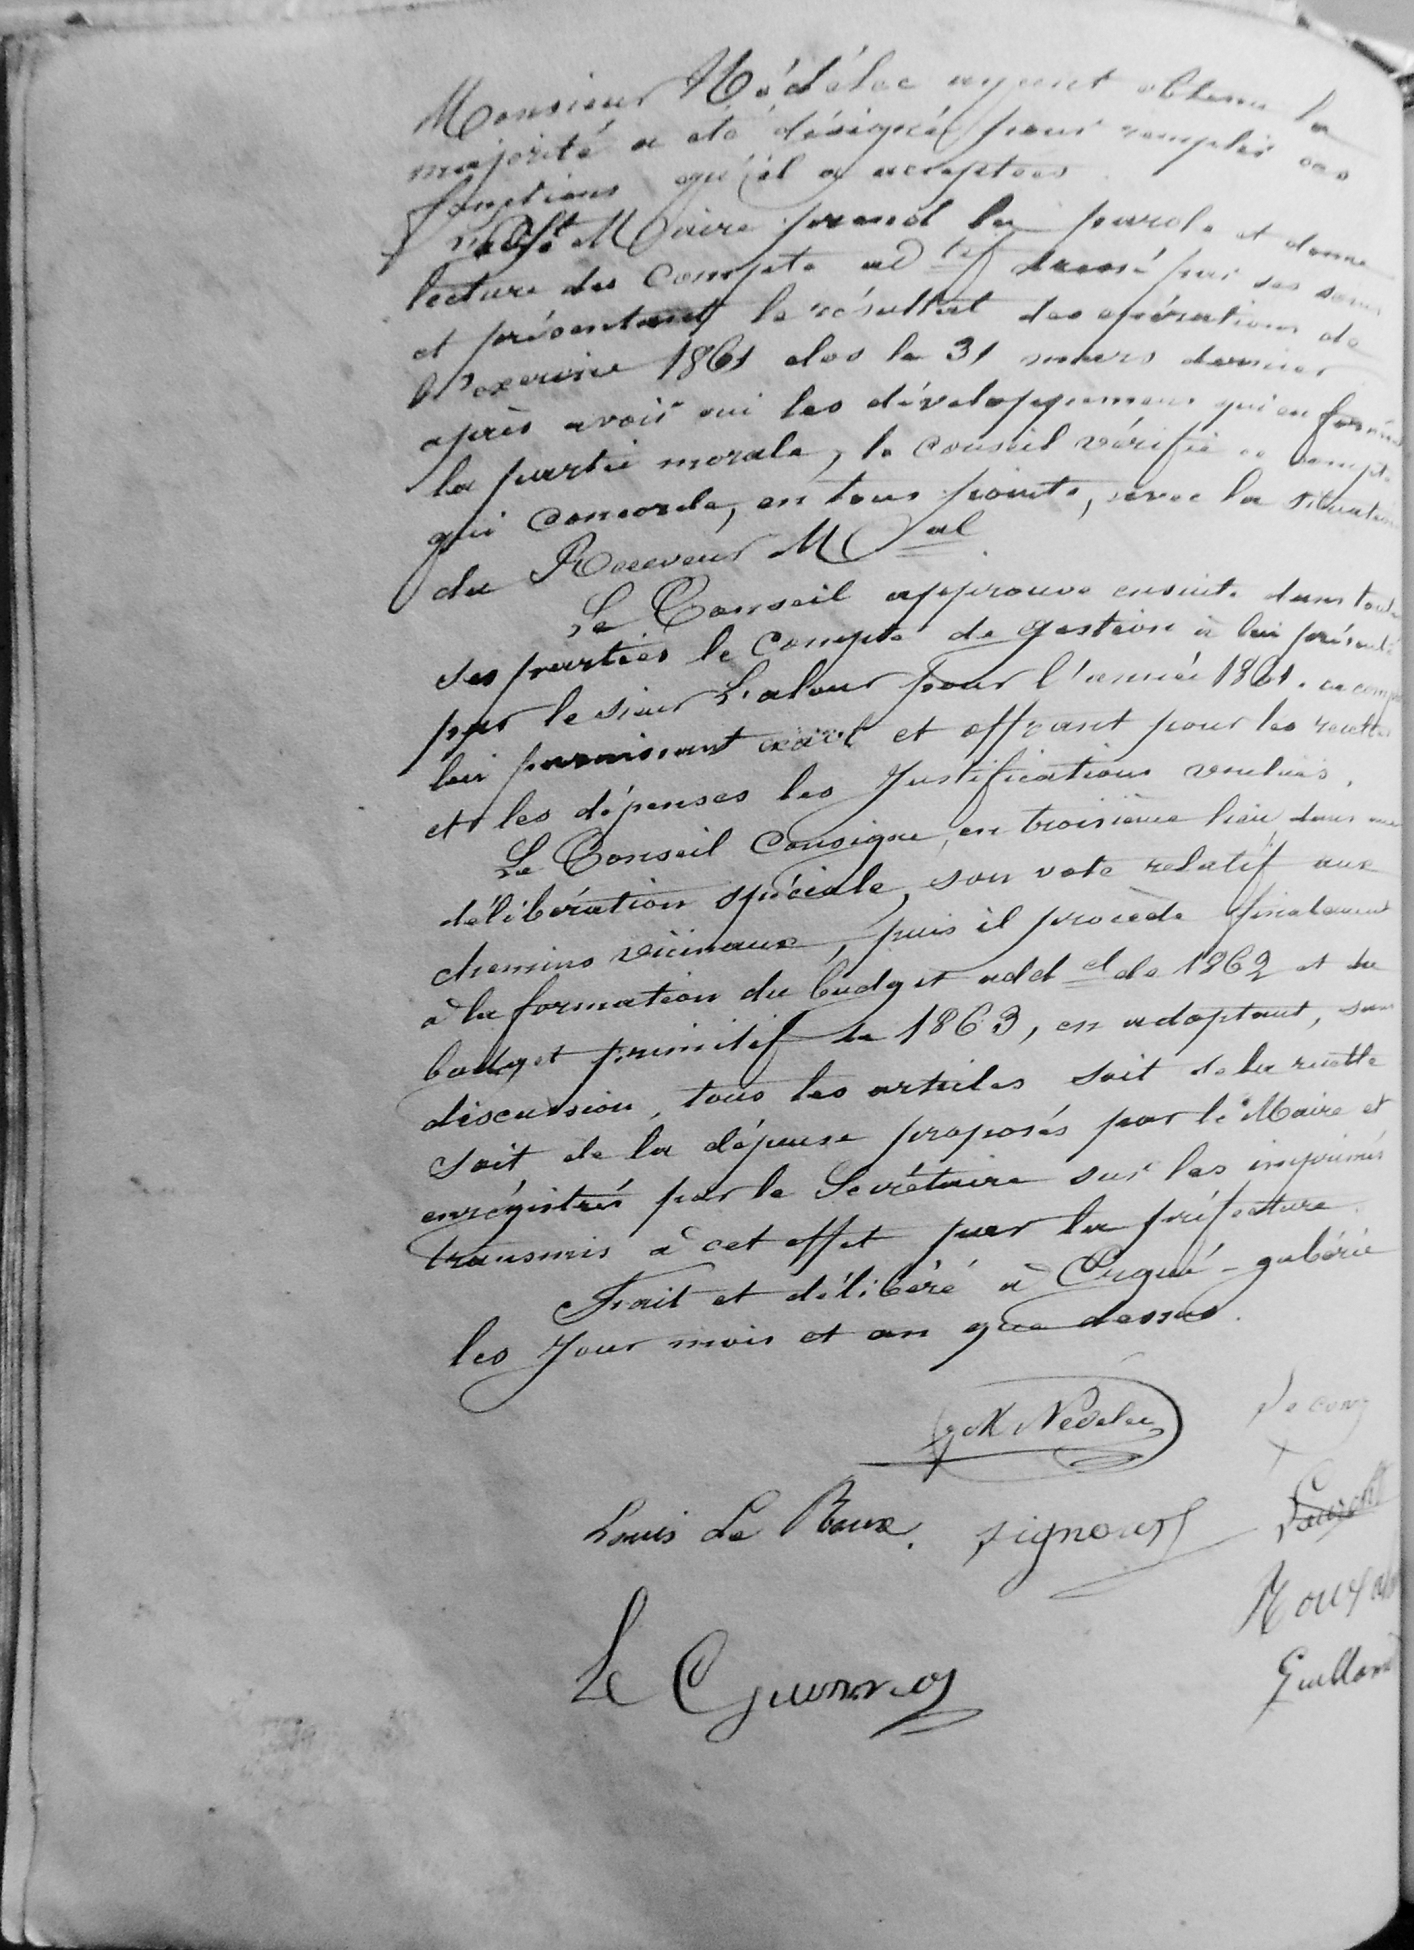 Monsieur Nédélec ayant obtenu la
majorité a été désigné pour remplir ces
fonctions qu'il a acceptées.
Maire prend la parole et donne
lecture du compte ad tif dressé par ses soins
et présentant le résultat des opérations de
l'exercice 1861 clos le 31 mars dernier
après avoir oui les développemens qui en forment
la partie morale, le conseil vérifie ce compte
qui concorde, en tous points, avec la situation
du Receveur M al
Le Conseil approuve ensuite dans toutes
ses parties le compte de gestion à lui présenté
par le sieur Lalour pour l'année 1861. ce compte
lui paraissant exact et offrant pour les recettes
et les dépenses les Justifications voulues.
Le Conseil Consigne, en troisième lieu, dans une
délibération spéciale, son vote relatif aux
chemins vicinaux, puis il procède finalement
à la formation du budget add el de 1862 et du
budget primitif de 1863, en adoptant, sans
discussion, tous les articles soit de la recette
soit de la dépense proposés par le Maire et
enrégistrés par le Secrétaire sur les imprimés
transmis à cet effet par la préfecture.
Fait et délibéré à Ergué-gabéric
les Jour mois et an que dessus.
M Nédelec
Louis Le Roux. Signour
Le Guennos